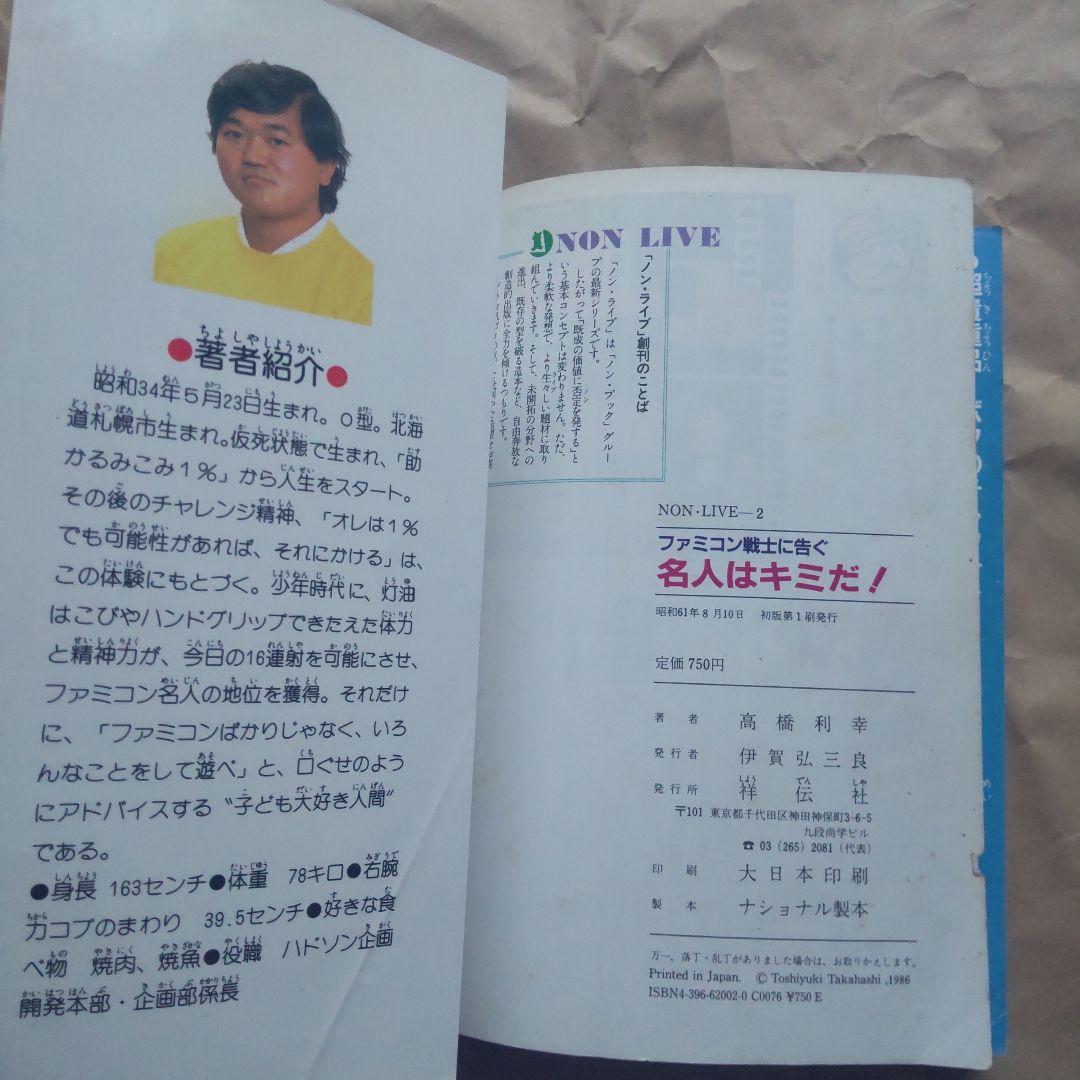 ●著者紹介●
ちよしやしようかい
昭和34年5月23日生まれ。O型。北海
道札幌市生まれ。仮死状態で生まれ、「助
かるみこみ1％」から人生をスタート。
その後のチャレンジ精神、「オレは1％
でも可能性があれば、それにかける」は、
この体験にもとづく。少年時代に、灯油
はこびやハンドグリップできたえた体力
と精神力が、今日の16連射を可能にさせ、
ファミコン名人の地位を獲得。それだけ
に、「ファミコンばかりじゃなく、いろ
んなことをして遊べ」と、口ぐせのよう
にアドバイスする〝子ども大好き人間〟
である。
●身長 163センチ●体重 78キロ●右腕
力コブのまわり 39.5センチ●好きな食
べ物 焼肉、焼魚●役職 ハドソン企画
開発本部・企画部係長
NON LIVE
「ノン・ライブ」創刊のことば
「ノン・ライブ」は「ノン・ブック」グルー
プの最新シリーズです。
したがって「既成の価値に否定を発する」と
いう基本コンセプトは変わりません。ただ、
より柔軟な発想で、より生々しい題材に取り
組んでいきます。そして、未開拓の分野への
進出、既存の型を破る造本など、自由奔放な
創造的出版に全力を傾けるつもりです。
NON・LIVE―2
ファミコン戦士に告ぐ
名人はキミだ！
昭和61年8月10日 初版第1刷発行
定価 750円
著者 高橋利幸
発行者 伊賀弘三良
発行所 祥伝社
しよう でん しや
〒101 東京都千代田区神田神保町3-6-5
九段尚学ビル
☎ 03 (265) 2081 (代表)
印刷 大日本印刷
製本 ナショナル製本
万一、落丁・乱丁がありました場合は、お取りかえします。
Printed in Japan. © Toshiyuki Takahashi ,1986
ISBN4-396-62002-0 C0076 ¥750 E